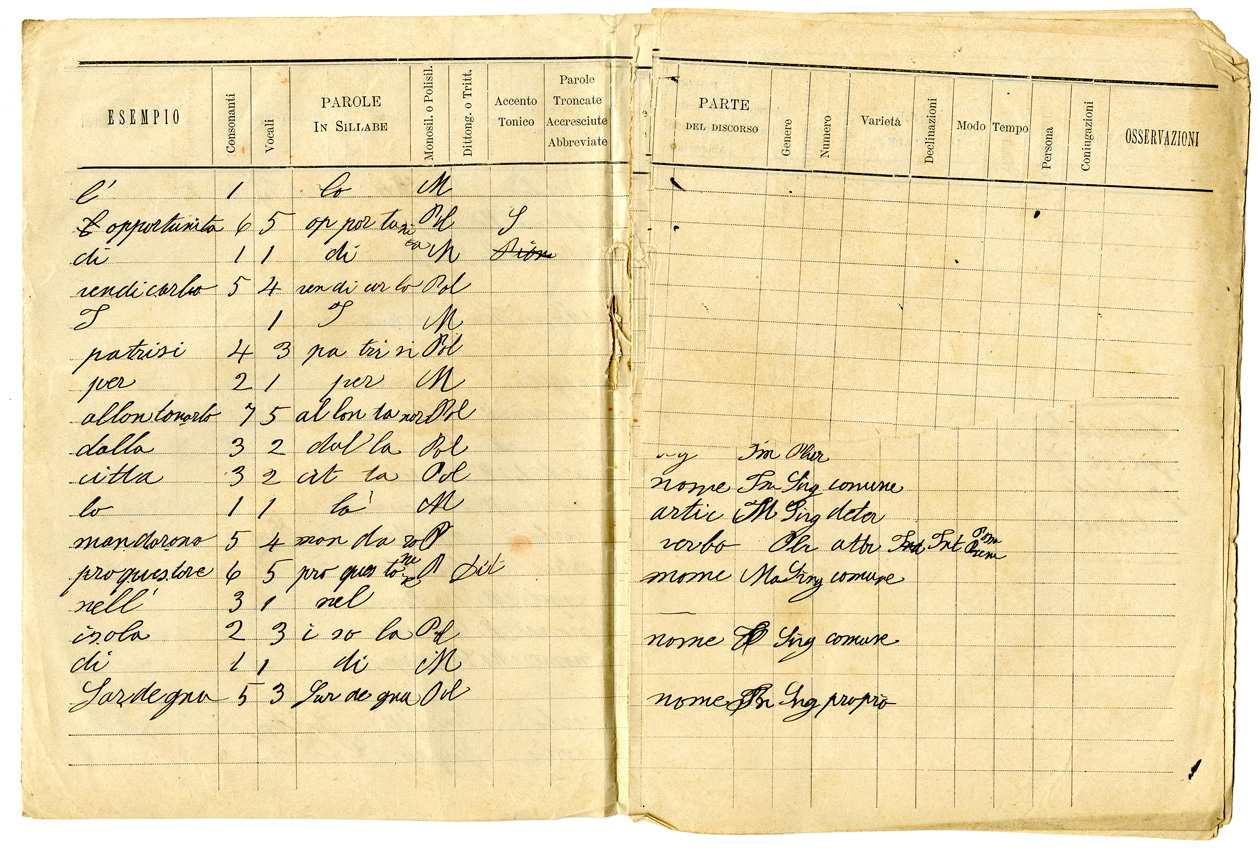 ESEMPIO Consonanti Vocali PAROLE IN SILLABE Monosil. o Polisil. Dittong. o Tritt. Accento Tonico Parole Troncate Accresciute Abbreviate PARTE DEL DISCORSO Genere Numero Varietà Declinazioni Modo Tempo Persona Coniugazioni OSSERVAZIONI
l' 1 lo M
opportunita 6 5 op por tu ni ta Pol S
di 1 1 di M
rendicarlo 5 4 ren di car lo Pol
I 1 I M
patrisi 4 3 pa tri si Pol
per 2 1 per M
allontanarlo 7 5 al lon ta nar Pol
dalla 3 2 dal la Pol Fm
citta 3 2 cit ta Pol nome Fm Sing comune
lo 1 1 la' M artic M Sing deter
mandarono 5 4 man da ro P verbo Plr attr Ind Int
proquestore 6 5 pro ques to re P Dit nome Ma Sing comune
nell' 3 1 nel
isola 2 3 i so la Pol nome Sing comune
di 1 1 di M
Sardegna 5 3 Sar de gna Pol nome Fm Sing proprio